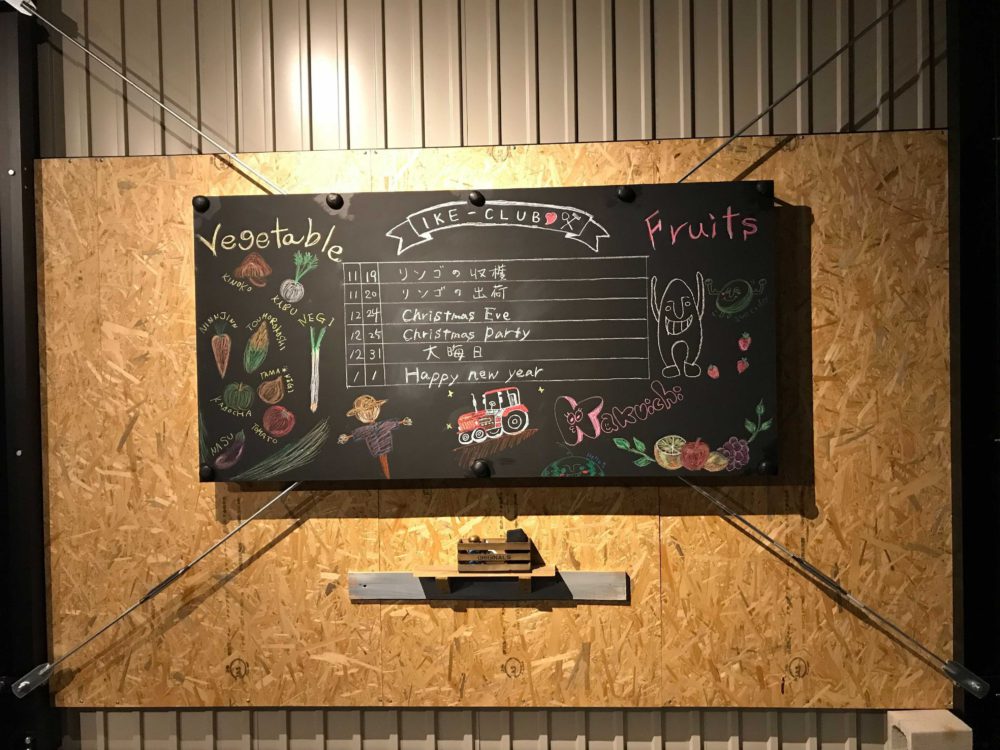 IKE-CLUB
Vegetable
Fruits
11 19 リンゴの収穫
11 20 リンゴの出荷
12 24 Christmas Eve
12 25 Christmas party
12 31 大晦日
1 1 Happy new year
KINOKO
KABU
NINNJINN
TOUMOROKOSHI
NEGI
KABOCHA
TAMANEGI
TOMATO
NASU
Makuichi
ORIGINALS